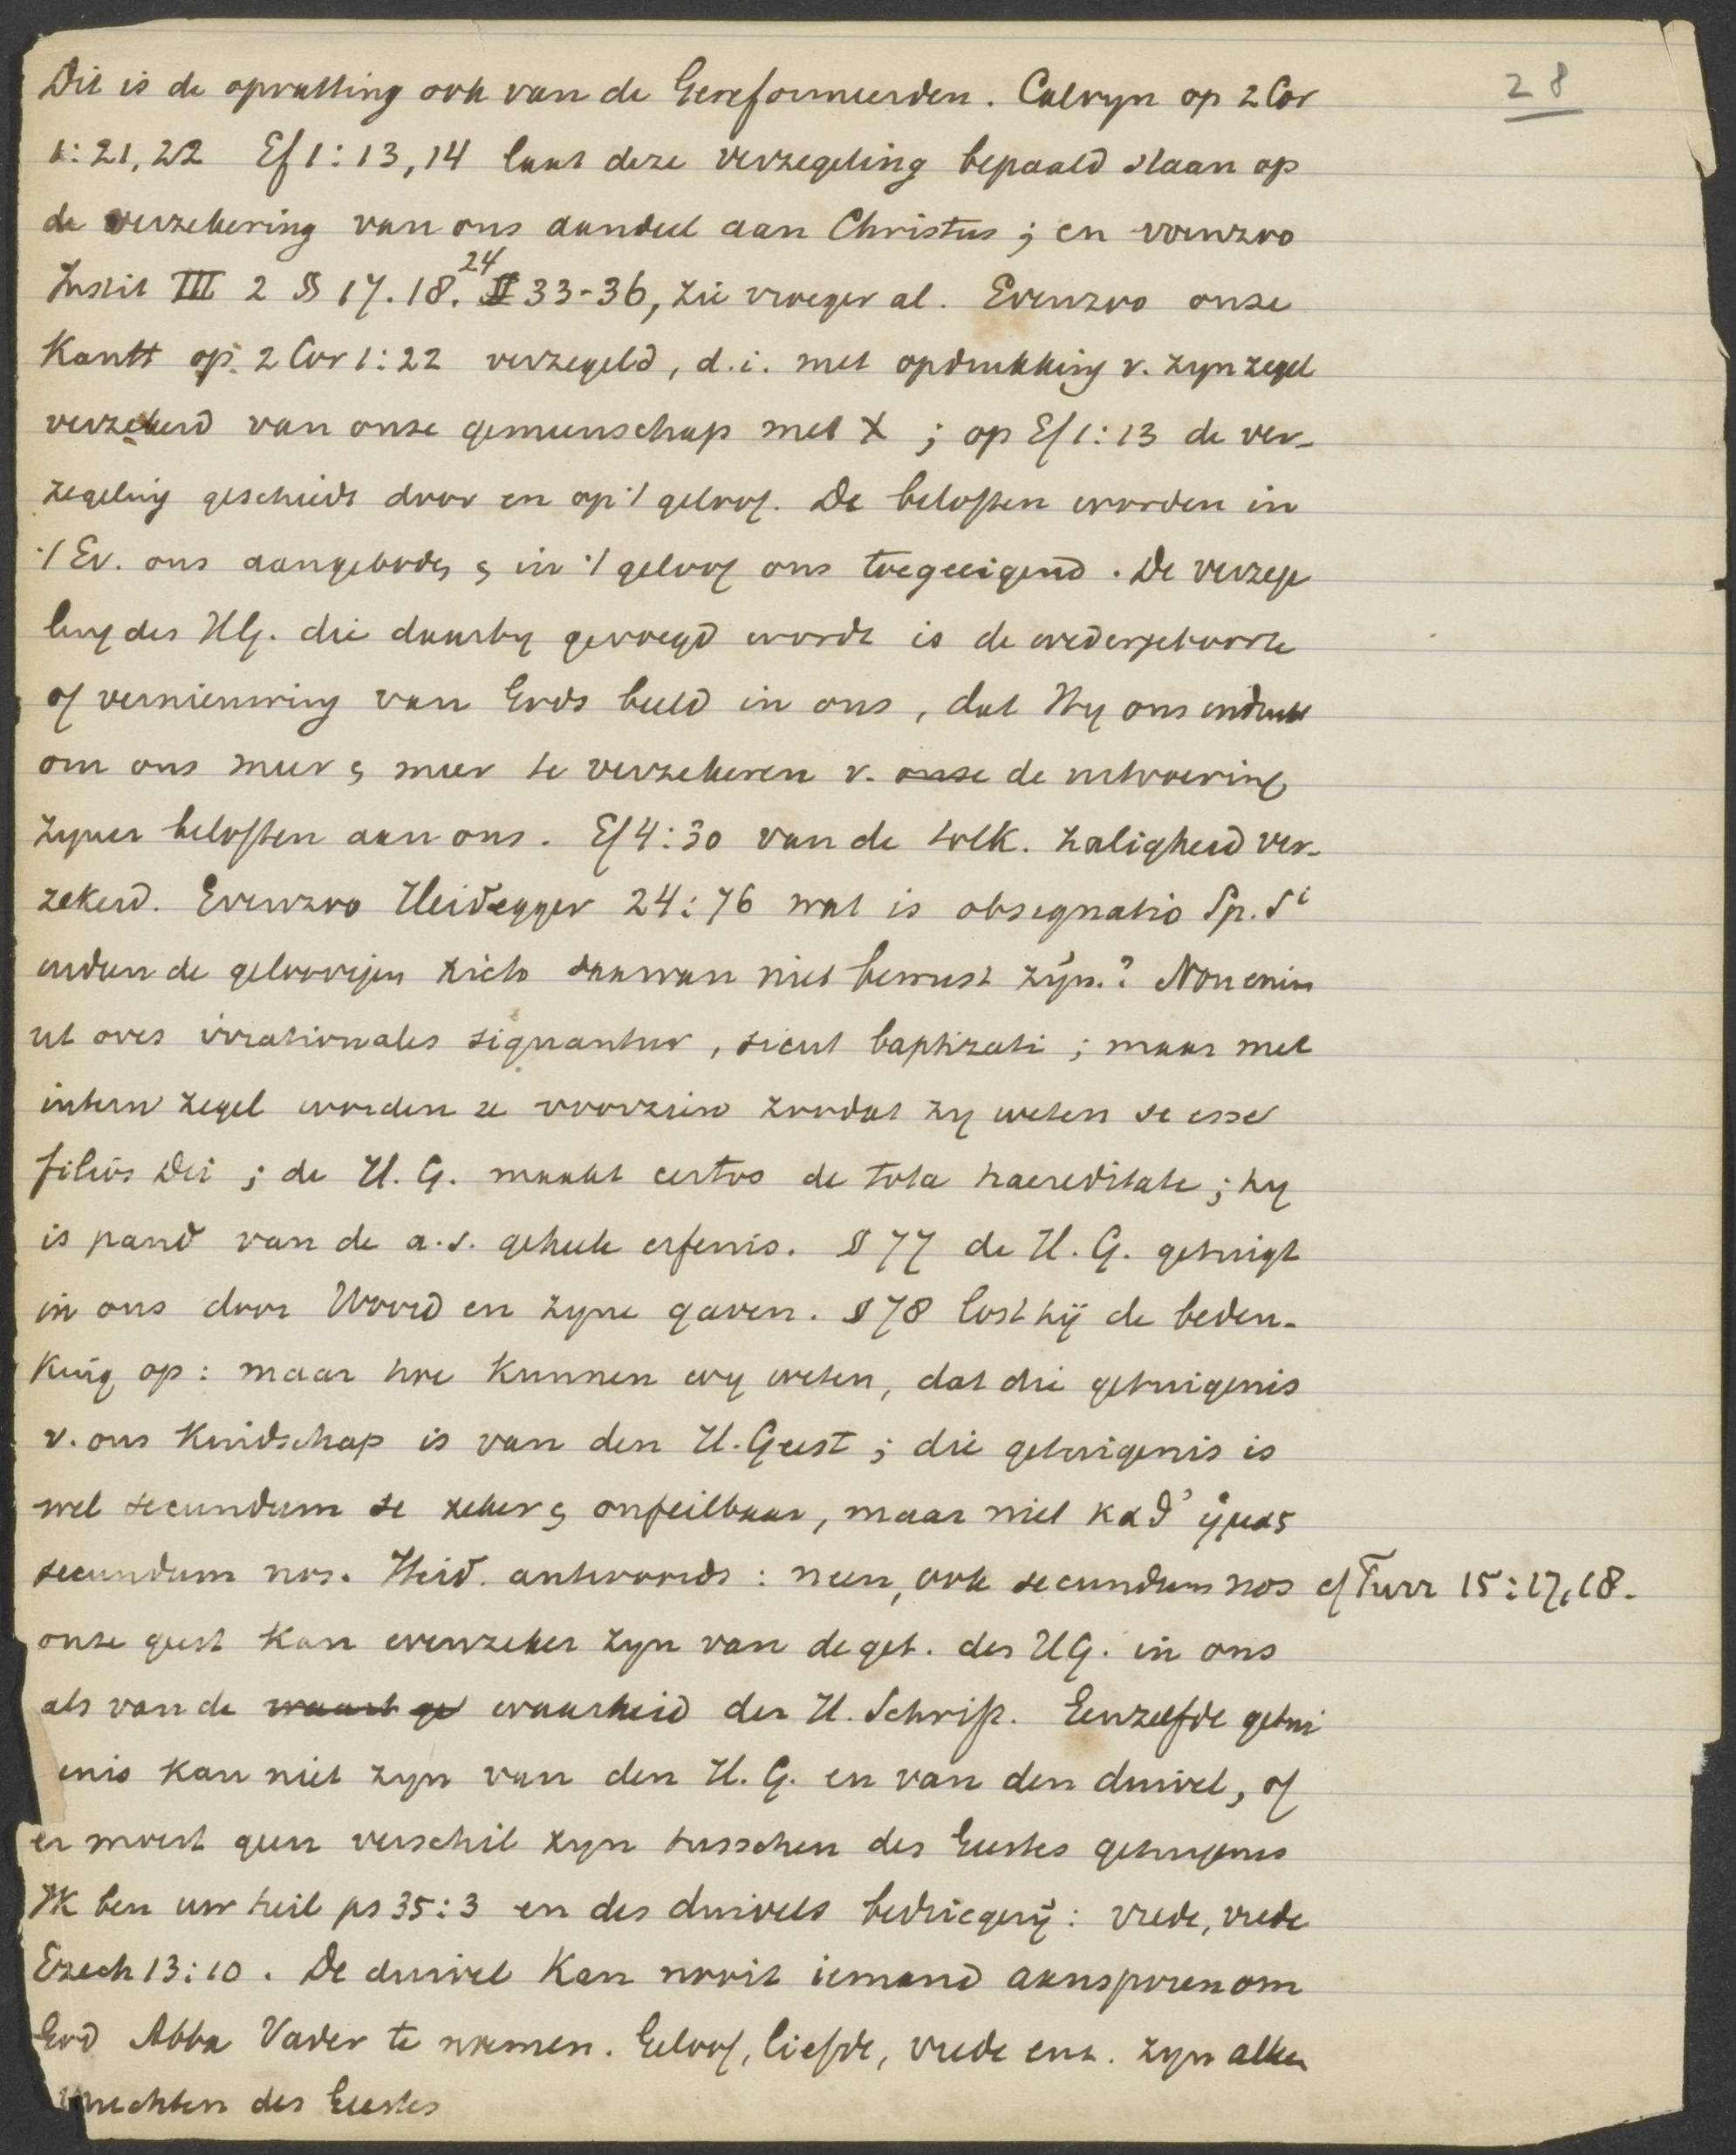 28
Dit is de opvatting ook van de Gereformeerden. Calvyn op 2 Cor
1:21,22 Ef 1:13,14 laat deze verzegeling bepaald slaan op
de verzekering van ons aandeel aan Christus; en voorzoo
Instit III 2 §§ 17. 18. 24 33-36, zie vroeger al. Evenzoo onze
Kantt op 2 Cor 1:22 verzegeld, d.i. met opdrukking v. zyn zegel
verzekerd van onze gemeenschap met X; op Ef 1:13 de ver-
zegeling geschiedt door en op 't geloof. De beloften worden in
't Ev. ons aangeboden & in 't geloof ons toegeeigend. De verzege
ling des HG. die daarby gevoegd wordt is de wedergeboorte
of vernieuwing van Gods beeld in ons, dat Hy ons indrukt
om ons meer & meer te verzekeren v. onze de uitvoering
zyner beloften aan ons. Ef 4:30 van de toek. zaligheid ver-
zekerd. Evenzoo Heidegger 24:76 wat is obsignatio Sp. Si
indien de geloovigen zich daarvan niet bewust zijn.? Non enim
ut oves irrationales signantur, sicut baptizati; maar met
intern zegel worden ze voorzien zoodat zy weten se esse
filios Dei; de H. G. maakt certos de tota haereditate; hy
is pand van de a.s. geheele erfenis. § 77 de H. G. getuigt
in ons door Woord en zyne gaven. § 78 lost hij de beden-
king op: maar hoe kunnen wy weten, dat die getuigenis
v. ons kindschap is van den H. Geest; die getuigenis is
wel secundum se zeker & onfeilbaar, maar niet καθ' ἡμας
secundum nos. Heid. antwoordt: neen, ook secundum nos cf Turr 15:17,18.
onze geest kan evenzeker zyn van de get. des HG. in ons
als van de waarh ge waarheid der H. Schrift. Eenzelfde getui
enis kan niet zyn van den H. G. en van den duivel, of
er moest geen verschil zyn tusschen des Geestes getuigenis
Ik ben uw heil ps 35:3 en des duivels bedriegerij: vrede, vrede
Ezech 13:10. De duivel kan nooit iemand aansporen om
God Abba Vader te noemen. Geloof, liefde, vrede enz. zyn allen
vruchten des Geestes